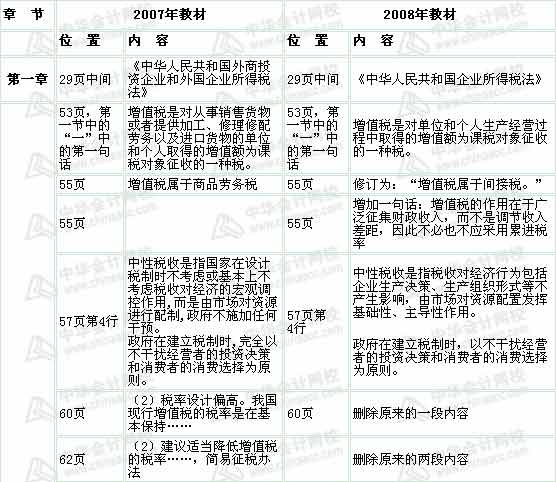 章 节
2007年教材
2008年教材
位 置
内 容
位 置
内 容
第一章
29页中间
《中华人民共和国外商投
资企业和外国企业所得税
法》
29页中间
《中华人民共和国企业所得税法》
53页，第
一节中的
“一”中
的第一句
话
增值税是对从事销售货物
或者提供加工、修理修配
劳务以及进口货物的单位
和个人取得的增值额为课
税对象征收的一种税。
53页，第
一节中的
“一”中
的第一句
话
增值税是对单位和个人生产经营过
程中取得的增值额为课税对象征收
的一种税。
55页
增值税属于商品劳务税
55页
修订为：“增值税属于间接税。”
55页
55页
增加一句话：增值税的作用在于广
泛征集财政收入，而不是调节收入
差距，因此不必也不应采用累进税
率
57页第4行
中性税收是指国家在设计
税制时不考虑或基本上不
考虑税收对经济的宏观调
控作用,而是由市场对资源
进行配制,政府不施加任何
干预。
政府在建立税制时,完全以
不干扰经营者的投资决策
和消费者的消费选择为原
则。
57页第
4行
中性税收是指税收对经济行为包括
企业生产决策、生产组织形式等不
产生影响，由市场对资源配置发挥
基础性、主导性作用。
政府在建立税制时，以不干扰经营
者的投资决策和消费者的消费选择
为原则。
60页
（2）税率设计偏高。我国
现行增值税的税率是在基
本保持……
60页
删除原来的一段内容
62页
（2）建议适当降低增值税
的税率……，简易征税办
法
62页
删除原来的两段内容
中华会计网校
www.chinaacc.com